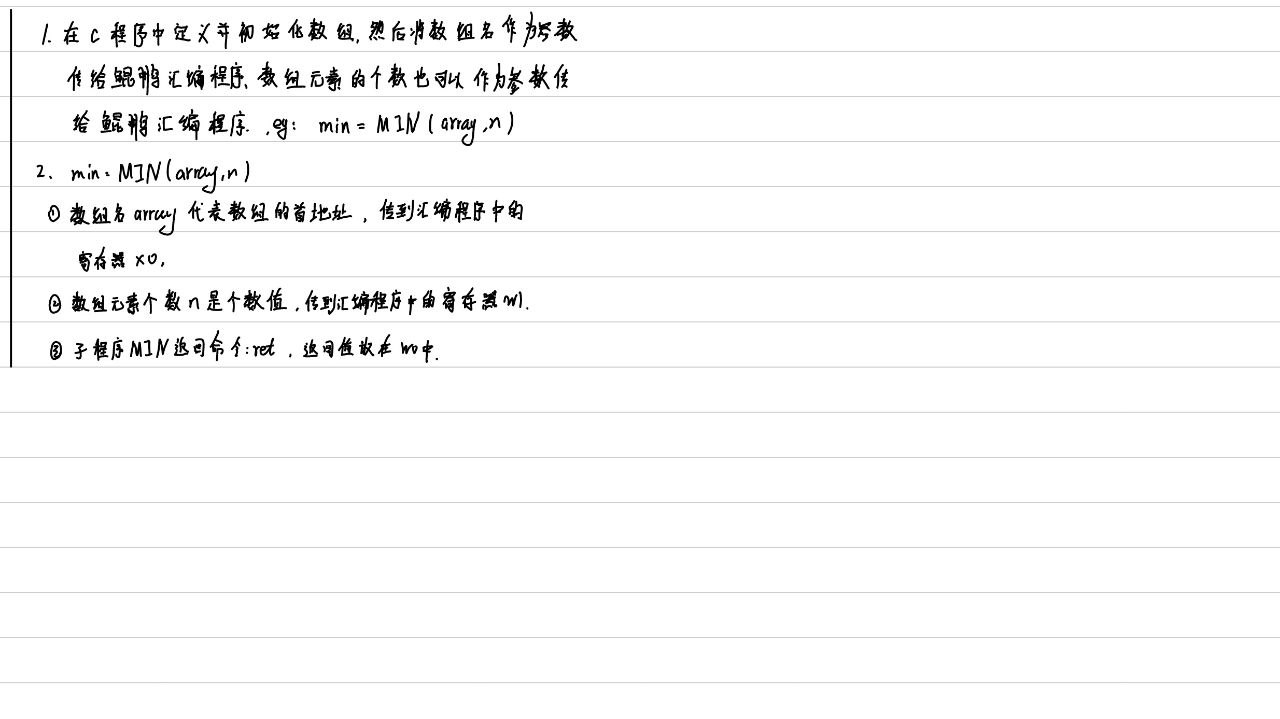 1. 在C程序中定义并初始化数组,然后将数组名作为参数
传给鲲鹏汇编程序、数组元素的个数也可以作为参数传
给鲲鹏汇编程序. eg: min = MIN(array,n)
2. min=MIN(array,n)
① 数组名array代表数组的首地址,传到汇编程序中的
寄存器x0.
② 数组元素个数n是个数值,传到汇编程序中的寄存器w1.
③ 子程序MIN返回命令:ret,返回值放在w0中.